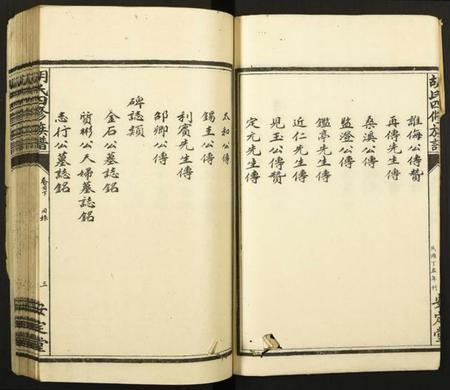 胡氏四修族譜
民國丁丑年刊
安定堂
誰侮公傳贊
再傳先生傳
桑溪公傳
監澄公傳
鑑亭先生傳
近仁先生傳
見玉公傳贊
定元先生傳
太和公傳
錫圭公傳
利賓先生傳
邵卿公傳
碑誌類
金石公墓誌銘
質彬公夫婦墓誌銘
志行公墓誌銘
胡氏四修族譜
目錄
三
安定堂